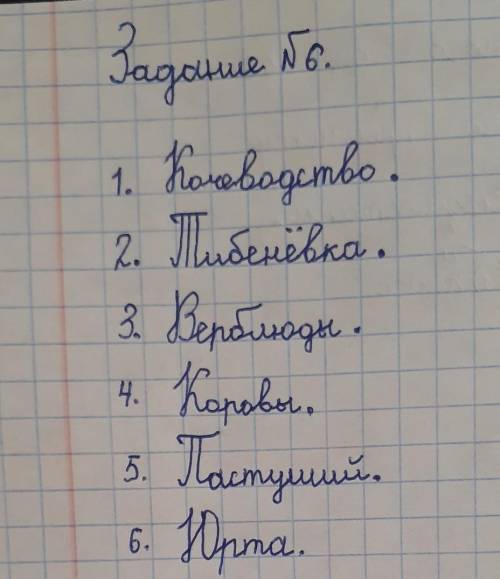 Задание №6.
1. Коневодство.
2. Тибенёвка.
3. Верблюды.
4. Коровы.
5. Пастуший.
6. Юрта.